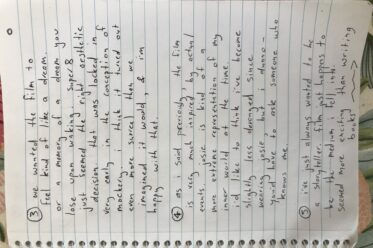 ③ we wanted the film to
feel kind of like a dream..
or a memory of a dream you
lose upon waking. super 8
just seemed the right aesthetic
decision that was locked in
very early in the conception of
mockery. i think it turned out
even more surreal then we
imagined it would, & i'm
happy with that.
④ as i said previously, the film
is very much inspired by actual
events. josie is kind of a
more extreme representation of my
inner world at the time.
i'd like to think i've become
slightly less deranged since
wearing josie but i dunno -
you'd have to ask someone who
knows me.
⑤ i've just always wanted to be
a storyteller. film just happens to
be the medium i fell into.
seemed more exciting than writing
books